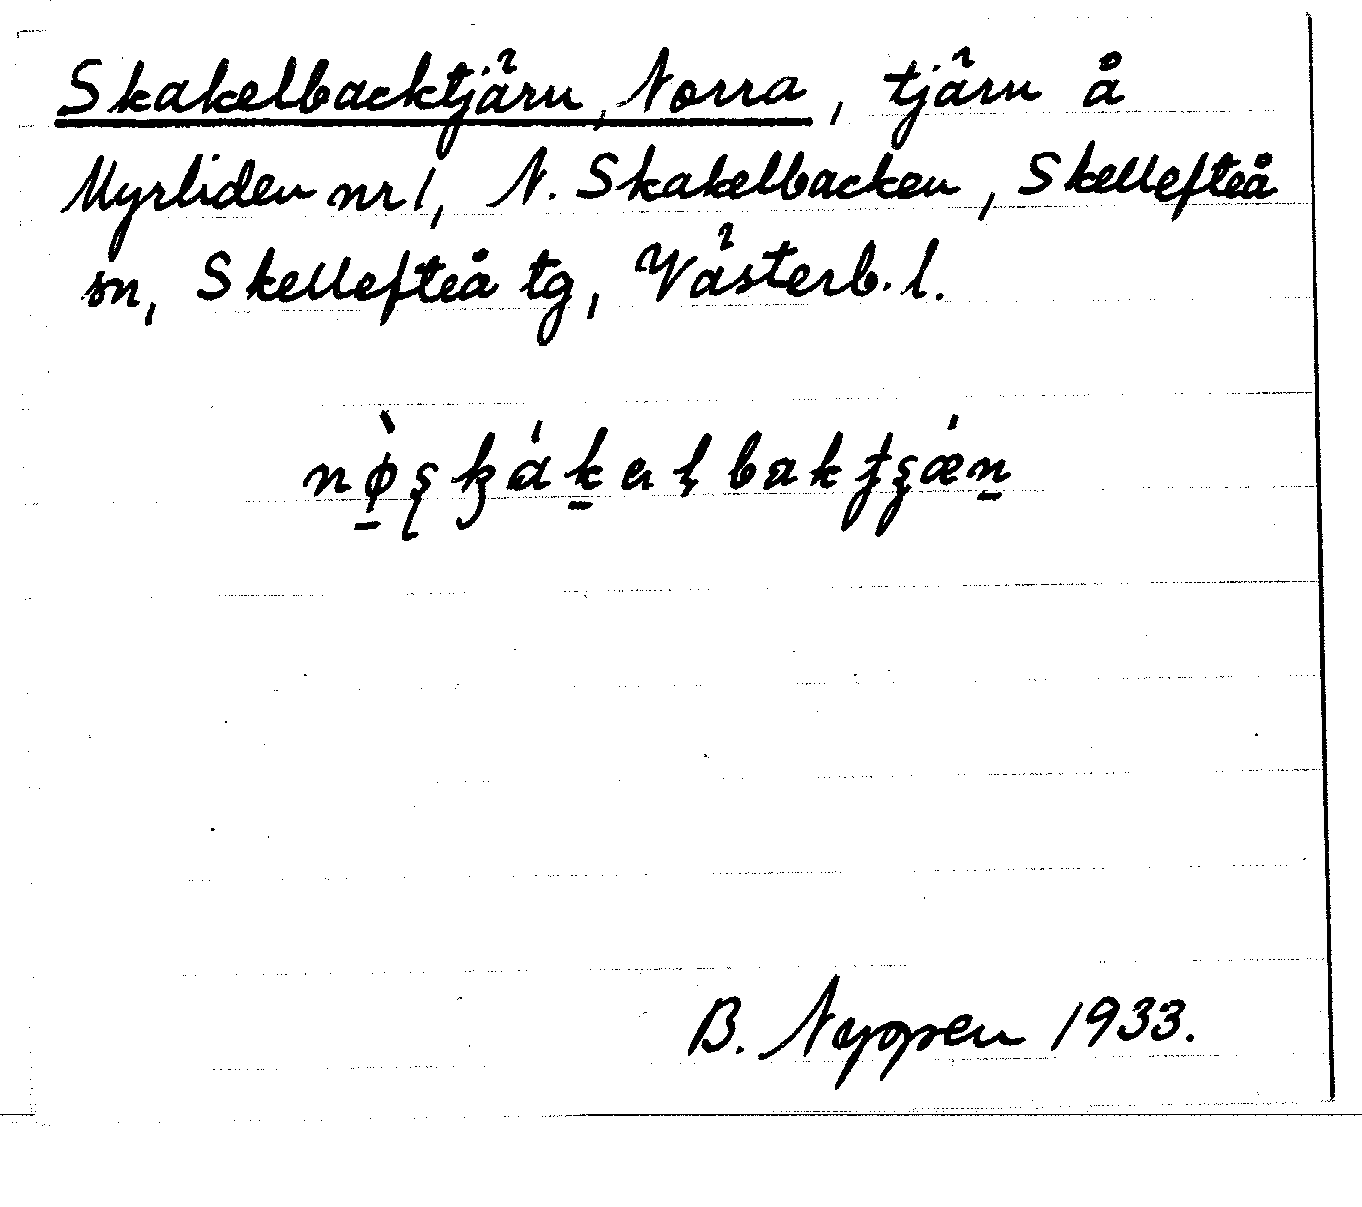 Skakelbacktjärn, Norra, tjärn å
Myrliden nr 1, N. Skakelbacken, Skellefteå
sn, Skellefteå tg, Västerb. l.
B. Nyppen 1933.